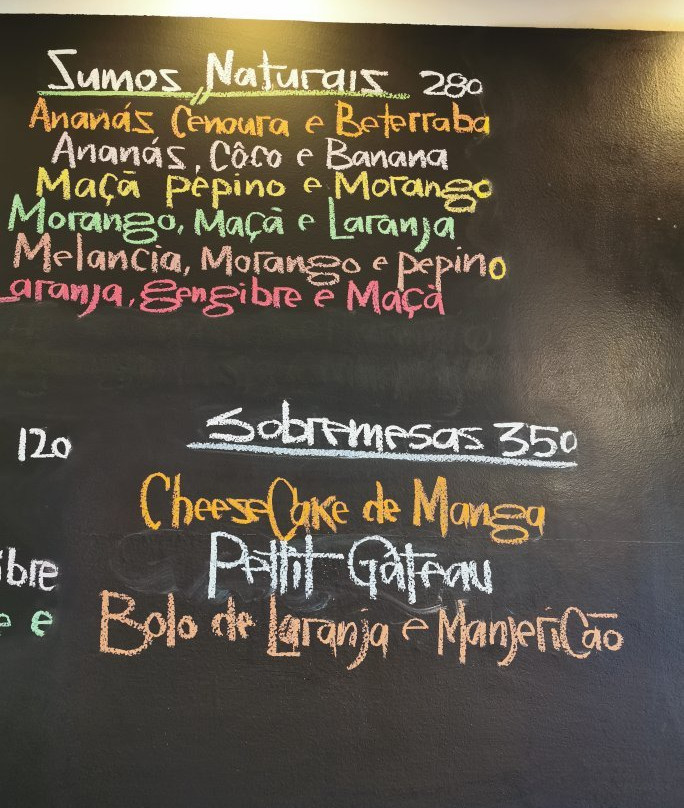 Sumos Naturais 280
Ananás Cenoura e Beterraba
Ananás, Côco e Banana
Maçã pépino e Morango
Morango, Maçã e Laranja
Melancia, Morango e pepino
Laranja, gengibre e Maçã
120
Sobremesas 350
CheeseCake de Manga
Pettit Gâteau
ibre
e e
Bolo de Laranja e ManjeriCão